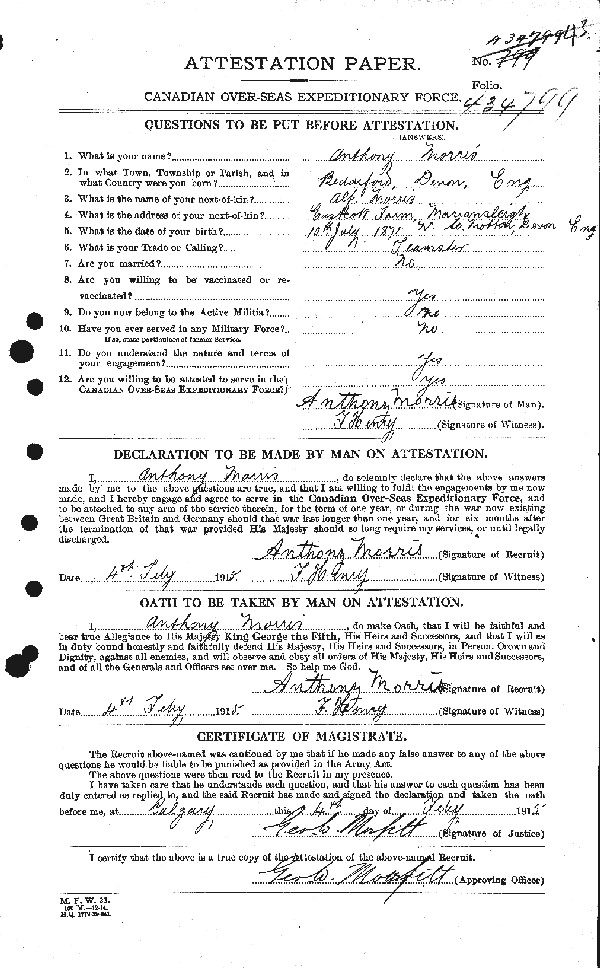 ATTESTATION PAPER.
No. 799
Folio.
CANADIAN OVER-SEAS EXPEDITIONARY FORCE.
434799
QUESTIONS TO BE PUT BEFORE ATTESTATION.
(ANSWERS.)
1. What is your name? Anthony Morris
2. In what Town, Township or Parish, and in
what Country were you born? Devon, Eng
3. What is the name of your next-of-kin? Alf. Morris
4. What is the address of your next-of-kin? Farm, Mariansleigh
5. What is the date of your birth? 10th July 1871 Devon Eng
6. What is your Trade or Calling? Teamster
7. Are you married? No
8. Are you willing to be vaccinated or re-
vaccinated? Yes
9. Do you now belong to the Active Militia? No
10. Have you ever served in any Military Force? No.
If so, state particulars of former Service.
11. Do you understand the nature and terms of
your engagement? Yes
12. Are you willing to be attested to serve in the
CANADIAN OVER-SEAS EXPEDITIONARY FORCE? Yes
Anthony Morris (Signature of Man).
F Henry (Signature of Witness).
DECLARATION TO BE MADE BY MAN ON ATTESTATION.
I, Anthony Morris, do solemnly declare that the above answers
made by me to the above questions are true, and that I am willing to fulfil the engagements by me now
made, and I hereby engage and agree to serve in the Canadian Over-Seas Expeditionary Force, and
to be attached to any arm of the service therein, for the term of one year, or during the war now existing
between Great Britain and Germany should that war last longer than one year, and for six months after
the termination of that war provided His Majesty should so long require my services, or until legally
discharged.
Anthony Morris (Signature of Recruit)
Date 4th Feby 1915 F Henry (Signature of Witness)
OATH TO BE TAKEN BY MAN ON ATTESTATION.
I, Anthony Morris, do make Oath, that I will be faithful and
bear true Allegiance to His Majesty King George the Fifth, His Heirs and Successors, and that I will as
in duty bound honestly and faithfully defend His Majesty, His Heirs and Successors, in Person, Crown and
Dignity, against all enemies, and will observe and obey all orders of His Majesty, His Heirs and Successors,
and of all the Generals and Officers set over me. So help me God.
Anthony Morris (Signature of Recruit)
Date 4th Feby 1915 F Henry (Signature of Witness)
CERTIFICATE OF MAGISTRATE.
The Recruit above-named was cautioned by me that if he made any false answer to any of the above
questions he would be liable to be punished as provided in the Army Act.
The above questions were then read to the Recruit in my presence.
I have taken care that he understands each question, and that his answer to each question has been
duly entered as replied to, and the said Recruit has made and signed the declaration and taken the oath
before me, at Calgary this 4th day of Feby 1915
(Signature of Justice)
I certify that the above is a true copy of the Attestation of the above-named Recruit.
(Approving Officer)
M. F. W. 23.